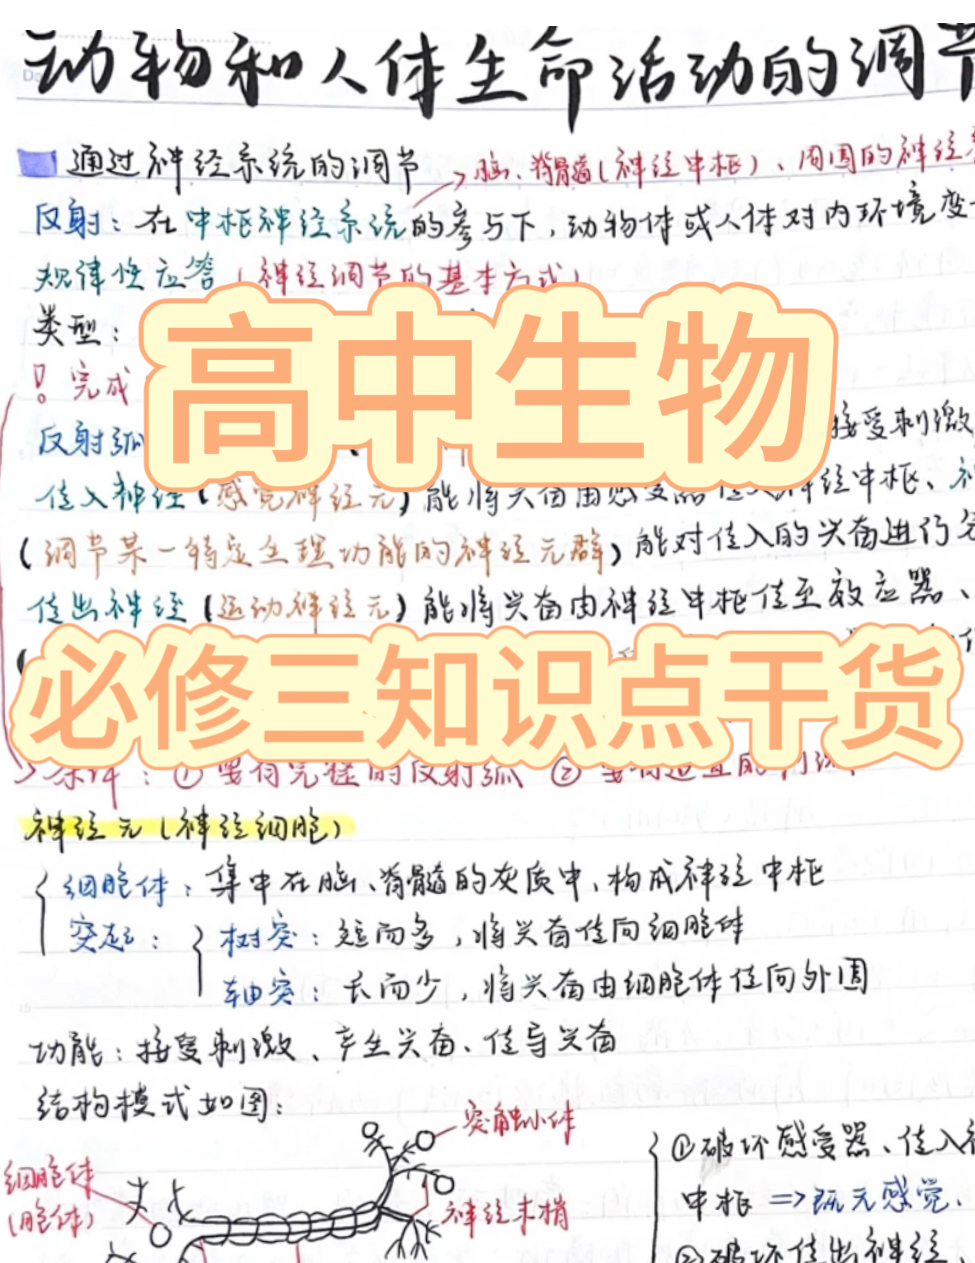 动物和人体生命活动的调节
通过神经系统的调节
脑、脊髓(神经中枢)、周围的神经
反射:在中枢神经系统的参与下,动物体或人体对内环境变
规律性应答(神经调节的基本方式)
类型:
! 完成
高中生物
反射弧
接受刺激
传入神经(感觉神经元)能将兴奋由感受器传入神经中枢、
(调节某一特定生理功能的神经元群)能对传入的兴奋进行
传出神经(运动神经元)能将兴奋由神经中枢传至效应器、
必修三知识点干货
条件:①要有完整的反射弧 ②要有适宜的刺激
神经元(神经细胞)
细胞体:集中在脑、脊髓的灰质中,构成神经中枢
突起:
树突:短而多,将兴奋传向细胞体
轴突:长而少,将兴奋由细胞体传向外围
功能:接受刺激、产生兴奋、传导兴奋
结构模式如图:
突触小体
细胞体
(胞体)
神经末梢
①破坏感受器、传入
中枢=>既无感觉、
②破坏传出神经、